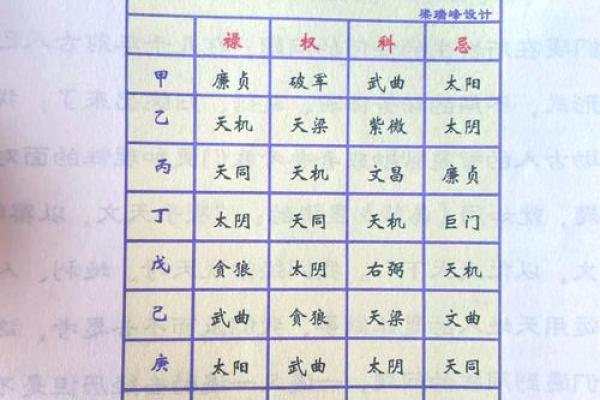 梁瑞峰设计
禄 权 科 忌
甲 廉贞 破军 武曲 太阳
乙 天机 天梁 紫微 太阴
丙 天同 天机 文昌 廉贞
丁 太阴 天同 天机 巨门
戊 贪狼 太阴 右弼 天机
己 武曲 贪狼 天梁 文曲
庚 太阳 武曲 太阴 天同